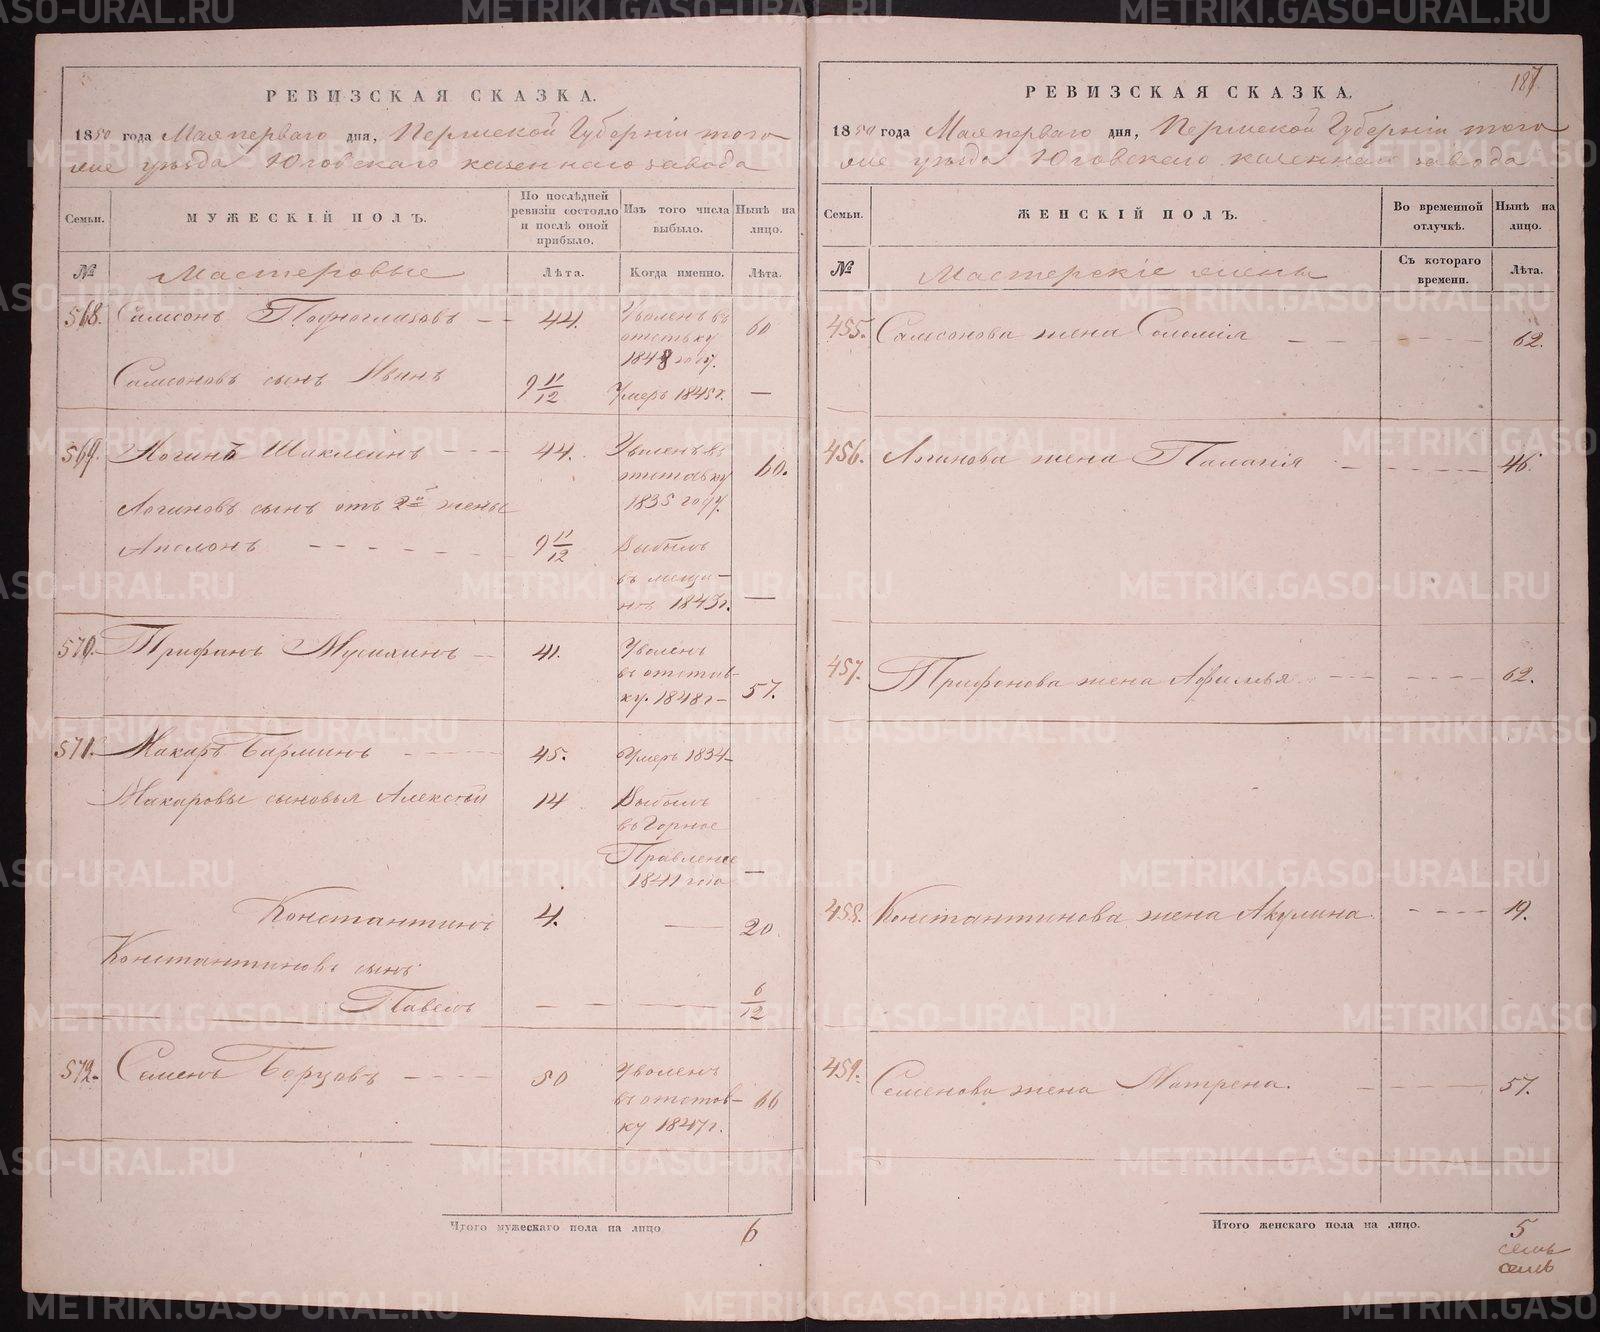 РЕВИЗСКАЯ СКАЗКА.
1850 года Мая перваго дня, Пермской Губерніи того
же уѣзда Юговскаго казеннаго завода
Семьи.
МУЖЕСКІЙ ПОЛЪ.
По послѣдней ревизіи состояло и послѣ оной прибыло.
Изъ того числа выбыло.
Нынѣ на лицо.
№
Мастеровые
Лѣта.
Когда именно.
Лѣта.
568. Самсонъ 44. Уволенъ въ отставку 1848 году. 60
Самсоновъ сынъ Иванъ 9 11/12 Умеръ 1845 г. —
569. Логинъ Шаклеинъ 44. Уволенъ въ отставку 1835 году. 60.
Логиновъ сынъ отъ 2й жены
Аполонъ 9 11/12 Выбылъ въ 1843 г. —
570. Трифанъ 41. Уволенъ въ отставку 1848 г 57.
571. Макаръ Барминъ 45. Умеръ 1834
Макаровы сыновья Алексѣй 14 Выбылъ въ Горное Правленіе 1841 года —
Константинъ 4. — 20.
Константиновъ сынъ
Павелъ — — — 6/12
572. Семенъ Борцовъ 50 Уволенъ въ отставку 1847 г. 66
Итого мужескаго пола на лицо 6
187.
РЕВИЗСКАЯ СКАЗКА.
1850 года Мая перваго дня, Пермской Губерніи того
же уѣзда Юговскаго казеннаго завода
Семьи.
ЖЕНСКІЙ ПОЛЪ.
Во временной отлучкѣ.
Нынѣ на лицо.
№
Мастерскіе жены
Съ котораго времени.
Лѣта.
455. Самсонова жена Соломія 62.
456. Логинова жена Палагія 46.
457. Трифонова жена Афимья 62.
458. Константинова жена Акулина 19.
459. Семенова жена Матрена. 57.
Итого женскаго пола на лицо. 5
METRIKI.GASO-URAL.RU